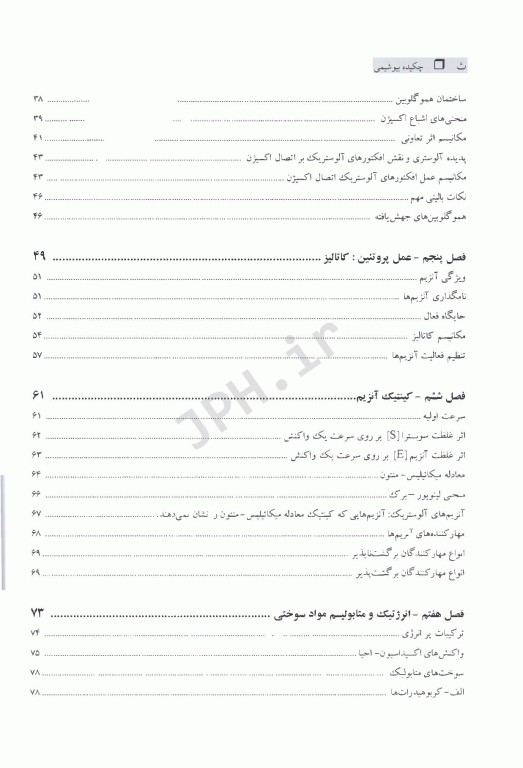 ث چکیده بیوشیمی
ساختمان هموگلوبین ۳۸
منحنی‌های اشباع اکسیژن ۳۹
مکانیسم اثر تعاونی ۴۱
پدیده آلوستری و نقش افکتورهای آلوستریک بر اتصال اکسیژن ۴۳
مکانیسم عمل افکتورهای آلوستریک اتصال اکسیژن ۴۳
نکات بالینی مهم ۴۶
هموگلوبین‌های جهش‌یافته ۴۶
فصل پنجم - عمل پروتئین : کاتالیز ۴۹
ویژگی آنزیم ۵۱
نامگذاری آنزیم‌ها ۵۱
جایگاه فعال ۵۲
مکانیسم کاتالیز ۵۴
تنظیم فعالیت آنزیم‌ها ۵۷
فصل ششم - کینتیک آنزیم ۶۱
سرعت اولیه ۶۱
اثر غلظت سوبسترا [S] بر روی سرعت یک واکنش ۶۲
اثر غلظت آنزیم [E] بر روی سرعت یک واکنش ۶۳
معادله میکائیلیس - منتون ۶۴
منحنی لینویور – برک ۶۶
آنزیم‌های آلوستریک: آنزیم‌هایی که کینتیک معادله میکائیلیس - منتون را نشان نمی‌دهند ۶۷
مهارکننده‌های آنزیم‌ها ۶۸
انواع مهارکنندگان برگشت‌ناپذیر ۶۹
انواع مهارکنندگان برگشت‌پذیر ۶۹
فصل هفتم - انرژتیک و متابولیسم مواد سوختی ۷۳
ترکیبات پر انرژی ۷۴
واکنش‌های اکسیداسیون - احیا ۷۵
سوخت‌های متابولیک ۷۸
الف - کربوهیدرات‌ها ۷۸
JPH.ir